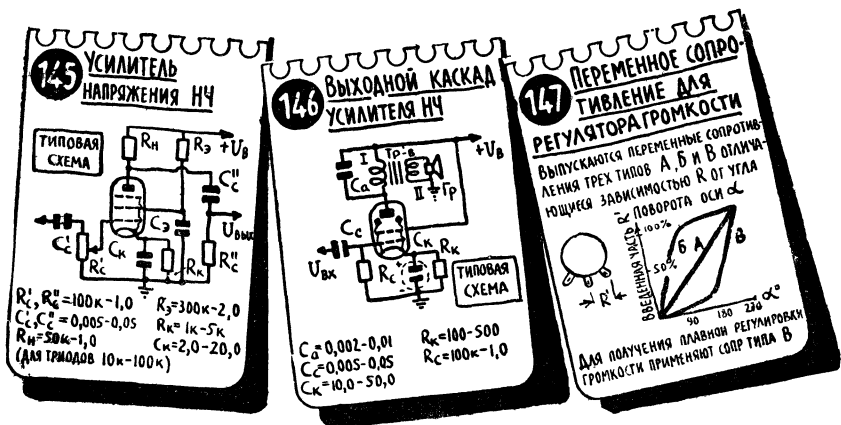 145
УСИЛИТЕЛЬ
НАПРЯЖЕНИЯ НЧ
ТИПОВАЯ
СХЕМА
Rн
Rэ
+Uв
C"c
Cэ
Uвых
C'c
R'c
Cк
Rк
R"c
R'c, R"c=100к-1,0
C'c, C"c=0,005-0,05
Rн=50к-1,0
(ДЛЯ ТРИОДОВ 10к-100к)
Rэ=300к-2,0
Rк=1к-5к
Cк=2,0-20,0
146
ВЫХОДНОЙ КАСКАД
УСИЛИТЕЛЯ НЧ
I
Тр-в
+Uв
Ca
II
Гр
Cc
Cк
Rк
Uвх
Rc
ТИПОВАЯ
СХЕМА
Ca=0,002-0,01
Cc=0,005-0,05
Cк=10,0-50,0
Rк=100-500
Rc=100к-1,0
147
ПЕРЕМЕННОЕ СОПРО-
ТИВЛЕНИЕ ДЛЯ
РЕГУЛЯТОРА ГРОМКОСТИ
ВЫПУСКАЮТСЯ ПЕРЕМЕННЫЕ СОПРОТИВ-
ЛЕНИЯ ТРЕХ ТИПОВ А, Б и В ОТЛИЧА-
ЮЩИЕСЯ ЗАВИСИМОСТЬЮ R ОТ УГЛА
ПОВОРОТА ОСИ α
R'
ВВЕДЕННАЯ ЧАСТЬ
100%
50%
Б
А
В
90
180
α°
ДЛЯ ПОЛУЧЕНИЯ ПЛАВНОЙ РЕГУЛИРОВКИ
ГРОМКОСТИ ПРИМЕНЯЮТ СОПР ТИПА В